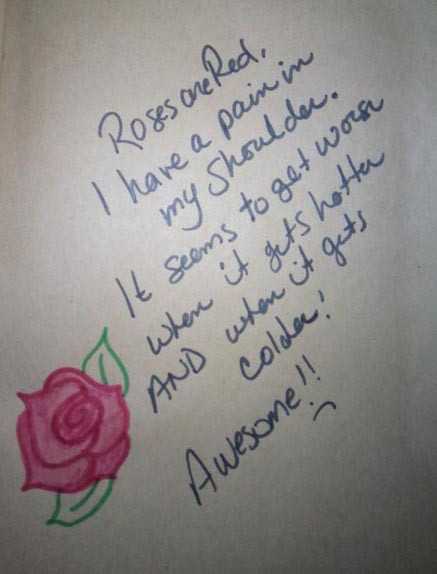 Roses are Red.
I have a pain in
my shoulder.
It seems to get worse
when it gets hotter
AND when it gets
colder!
Awesome!!